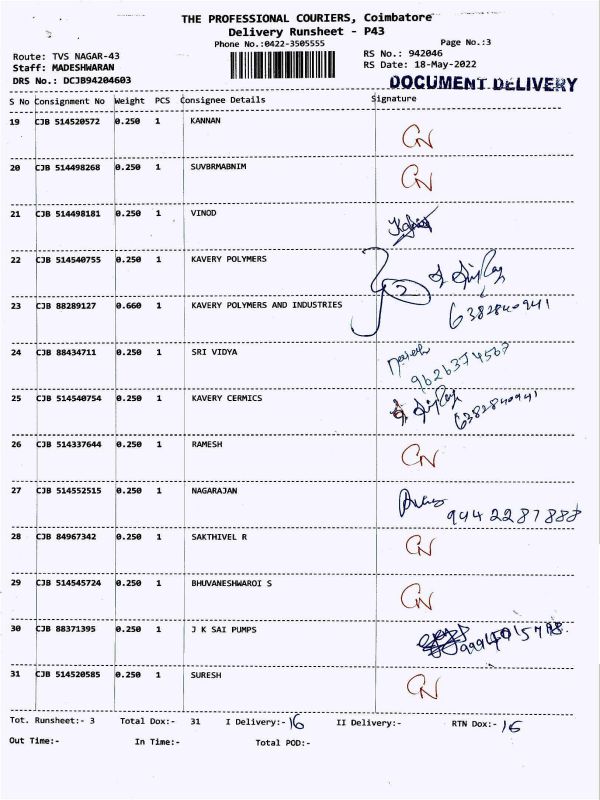 THE PROFESSIONAL COURIERS, Coimbatore
Delivery Runsheet - P43
Phone No.:0422-3505555
Page No.:3
Route: TVS NAGAR-43
RS No.: 942046
Staff: MADESHWARAN
RS Date: 18-May-2022
DRS No.: DCJB94204603
DOCUMENT DELIVERY
S No Consignment No Weight PCS Consignee Details Signature
19 CJB 514520572 0.250 1 KANNAN CN
20 CJB 514498268 0.250 1 SUVBRMABNIM CN
21 CJB 514498181 0.250 1 VINOD
22 CJB 514540755 0.250 1 KAVERY POLYMERS
23 CJB 88289127 0.660 1 KAVERY POLYMERS AND INDUSTRIES 2 6382840941
24 CJB 88434711 0.250 1 SRI VIDYA 9626374567
25 CJB 514540754 0.250 1 KAVERY CERMICS 6382840941
26 CJB 514337644 0.250 1 RAMESH CN
27 CJB 514552515 0.250 1 NAGARAJAN 9442287888
28 CJB 84967342 0.250 1 SAKTHIVEL R CN
29 CJB 514545724 0.250 1 BHUVANESHWAROI S CN
30 CJB 88371395 0.250 1 J K SAI PUMPS
31 CJB 514520585 0.250 1 SURESH CN
Tot. Runsheet:- 3 Total Dox:- 31 I Delivery:- 16 II Delivery:- RTN Dox:- 16
Out Time:- In Time:- Total POD:-